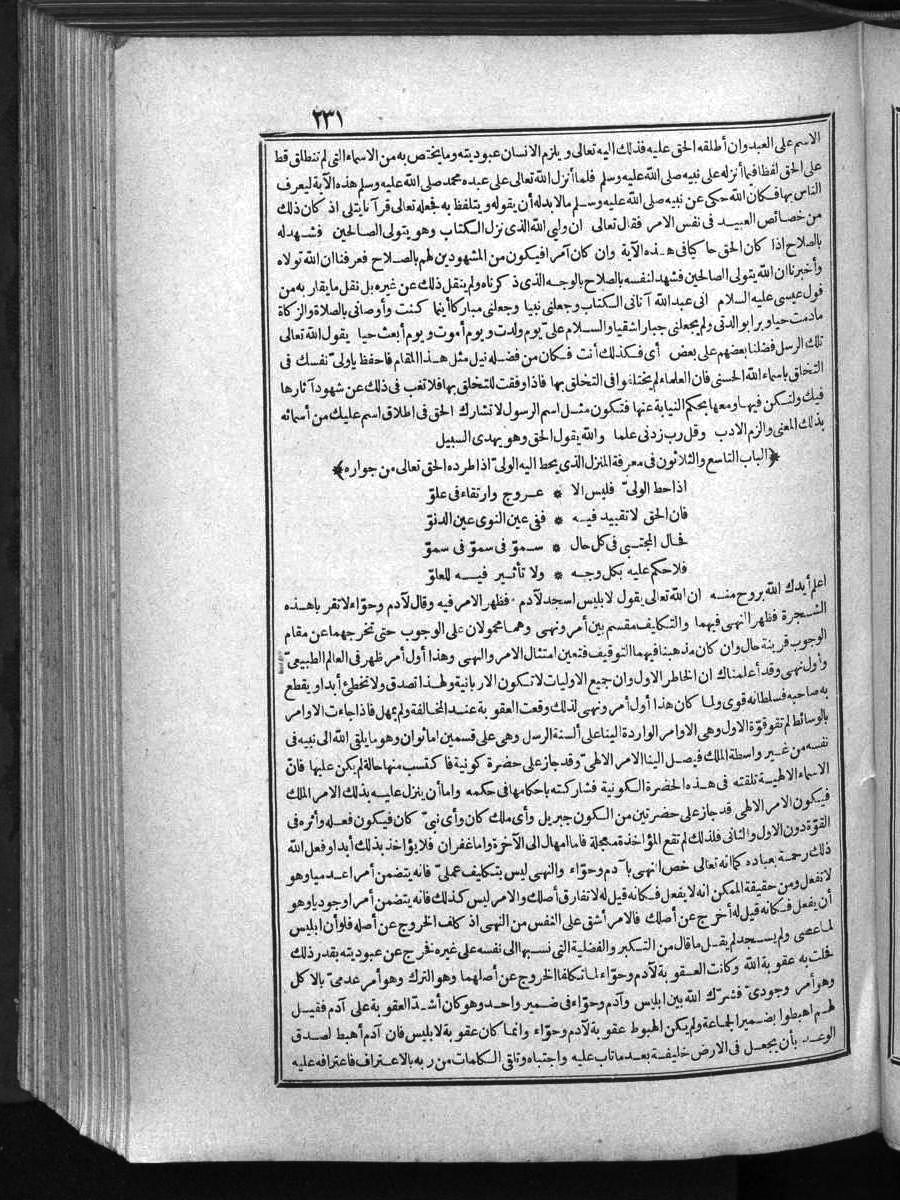 ٢٣١
الاسم على العبد وان أطلقه الحق عليه فذلك اليه تعالى ويلزم الانسان عبوديته وما يختص به من الاسماء التى لم تنطلق قط
على الحق لفظا فيما أنزله على نبيه صلى الله عليه وسلم فلما أنزل الله تعالى على عبده محمد صلى الله عليه وسلم هذه الآية ليعرف
الناس بها فكان الله حكى عن نبيه صلى الله عليه وسلم مالابدله أن يقوله ويتلفظ به فجعله تعالى قرآنا يتلى اذ كان ذلك
من خصائص العبيد فى نفس الامر فقال تعالى ان وليى الله الذى نزل الكتاب وهو يتولى الصالحين فشهد له
بالصلاح اذا كان الحق حاكيا فى هذه الآية وان كان آمرا فيكون من المشهودين لهم بالصلاح فعرفنا ان الله تولاه
وأخبرنا ان الله يتولى الصالحين فشهد لنفسه بالصلاح بالوجه الذى ذكرناه ولم ينقل ذلك عن غيره بل نقل ما يقاربه من
قول عيسى عليه السلام انى عبد الله آتانى الكتاب وجعلنى نبيا وجعلنى مباركا أينما كنت وأوصانى بالصلاة والزكاة
مادمت حيا وبرا بوالدتى ولم يجعلنى جبارا شقيا والسلام علىّ يوم ولدت ويوم أموت ويوم أبعث حيا يقول الله تعالى
تلك الرسل فضلنا بعضهم على بعض أى فكذلك أنت فكان من فضله نيل مثل هذا المقام فاحفظ ياولىّ نفسك فى
التخلق باسماء الله الحسنى فان العلماء لم يختلفوا فى التخلق بها فاذا وفقت للتخلق بها فلا تغب فى ذلك عن شهود آثارها
فيك ولتكن فيها ومعها بحكم النيابة عنها فتكون مثل اسم الرسول لا تشارك الحق فى اطلاق اسم عليك من أسمائه
بذلك المعنى والزم الادب وقل رب زدنى علما والله يقول الحق وهو يهدى السبيل
﴿الباب التاسع والثلاثون فى معرفة المنزل الذى يحط اليه الولىّ اذا طرده الحق تعالى من جواره﴾
اذا حط الولىّ فليس الا * عروج وارتقاء فى علوّ
فان الحق لا تقييد فيه * ففى عين النوى عين الدنوّ
فحال المجتبى فى كل حال * سموّ فى سموّ فى سموّ
فلا حكم عليه بكل وجه * ولا تأثير فيه للعلوّ
اعلم أيدك الله بروح منه ان الله تعالى يقول لابليس اسجد لآدم فظهر الامر فيه وقال لآدم وحوّاء لا تقربا هذه
الشجرة فظهر النهى فيهما والتكليف مقسم بين أمر ونهى وهما محمولان على الوجوب حتى تخرجهما عن مقام
الوجوب قرينة حال وان كان مذهبنا فيهما التوقيف فتعين امتثال الامر والنهى وهذا أول أمر ظهر فى العالم الطبيعىّ
وأول نهى وقد أعلمناك ان الخاطر الاول وان جميع الاوليات لا تكون الا ربانية ولهذا تصدق ولا تخطئ أبدا ويقطع
به صاحبه فسلطانه قوى ولما كان هذا أول أمر ونهى لذلك وقعت العقوبة عند المخالفة ولم يمهل فاذا جاءت الاوامر
بالوسائط لم تقوقوّة الاول وهى الاوامر الواردة الينا على ألسنة الرسل وهى على قسمين اما ثوان وهو ما يلقى الله الى نبيه فى
نفسه من غير واسطة الملك فيصل الينا الامر الالهىّ وقد جاز على حضرة كونية فاكتسب منها حالة لم يكن عليها فانّ
الاسماء الالهية تلقته فى هذه الحضرة الكونية فشاركته باحكامها فى حكمه واما أن ينزل عليه بذلك الامر الملك
فيكون الامر الالهى قد جاز على حضرتين من الكون جبريل وأى ملك كان وأى نبىّ كان فيكون فعله وأثره فى
القوّة دون الاول والثانى فلذلك لم تقع المؤاخذة معجلة فاما امهال الى الآخرة واما غفران فلا يؤاخذ بذلك أبدا وفعل الله
ذلك رحمة بعباده كما انه تعالى خص النهى بآدم وحوّاء والنهى ليس بتكليف عملىّ فانه يتضمن أمرا عدميا وهو
لا تفعل ومن حقيقة الممكن انه لا يفعل فكانه قيل له لا تفارق أصلك والامر ليس كذلك فانه يتضمن أمرا وجوديا وهو
أن يفعل فكانه قيل له أخرج عن أصلك فالامر أشق على النفس من النهى اذ كلف الخروج عن أصله فلوأن ابليس
لما عصى ولم يسجد لم يقل ما قال من التكبر والفضلية التى نسبها الى نفسه على غيره فخرج عن عبوديته بقدر ذلك
فحلت به عقوبة الله وكانت العقوبة لآدم وحوّاء لما تكلفا الخروج عن أصلهما وهو الترك وهو أمر عدمىّ بالاكل
وهو أمر وجودىّ فشرّك الله بين ابليس وآدم وحوّاء فى ضمير واحد وهو كان أشدّ العقوبة على آدم فقيل
لهم اهبطوا بضمير الجماعة ولم يكن الهبوط عقوبة لآدم وحوّاء وانما كان عقوبة لابليس فان آدم أهبط لصدق
الوعد بأن يجعل فى الارض خليفة بعدما تاب عليه واجتباه وتلقى الكلمات من ربه بالاعتراف فاعترافه عليه